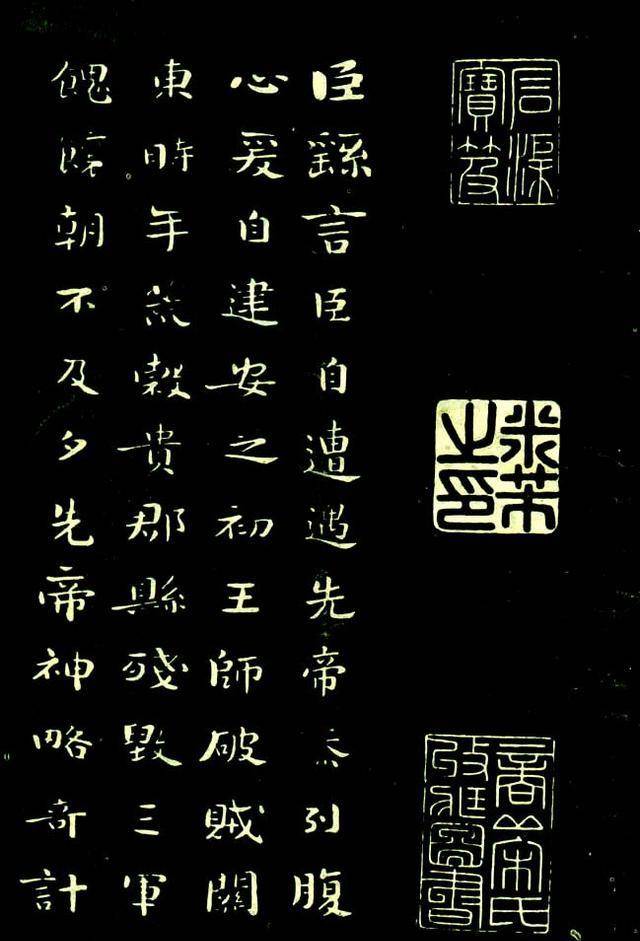 石渠
寶笈
米芾
之印
臣繇言臣自遭遇先帝忝列腹
心爰自建安之初王師破賊關
東時年荒穀貴郡縣殘毀三軍
餽饟朝不及夕先帝神略奇計